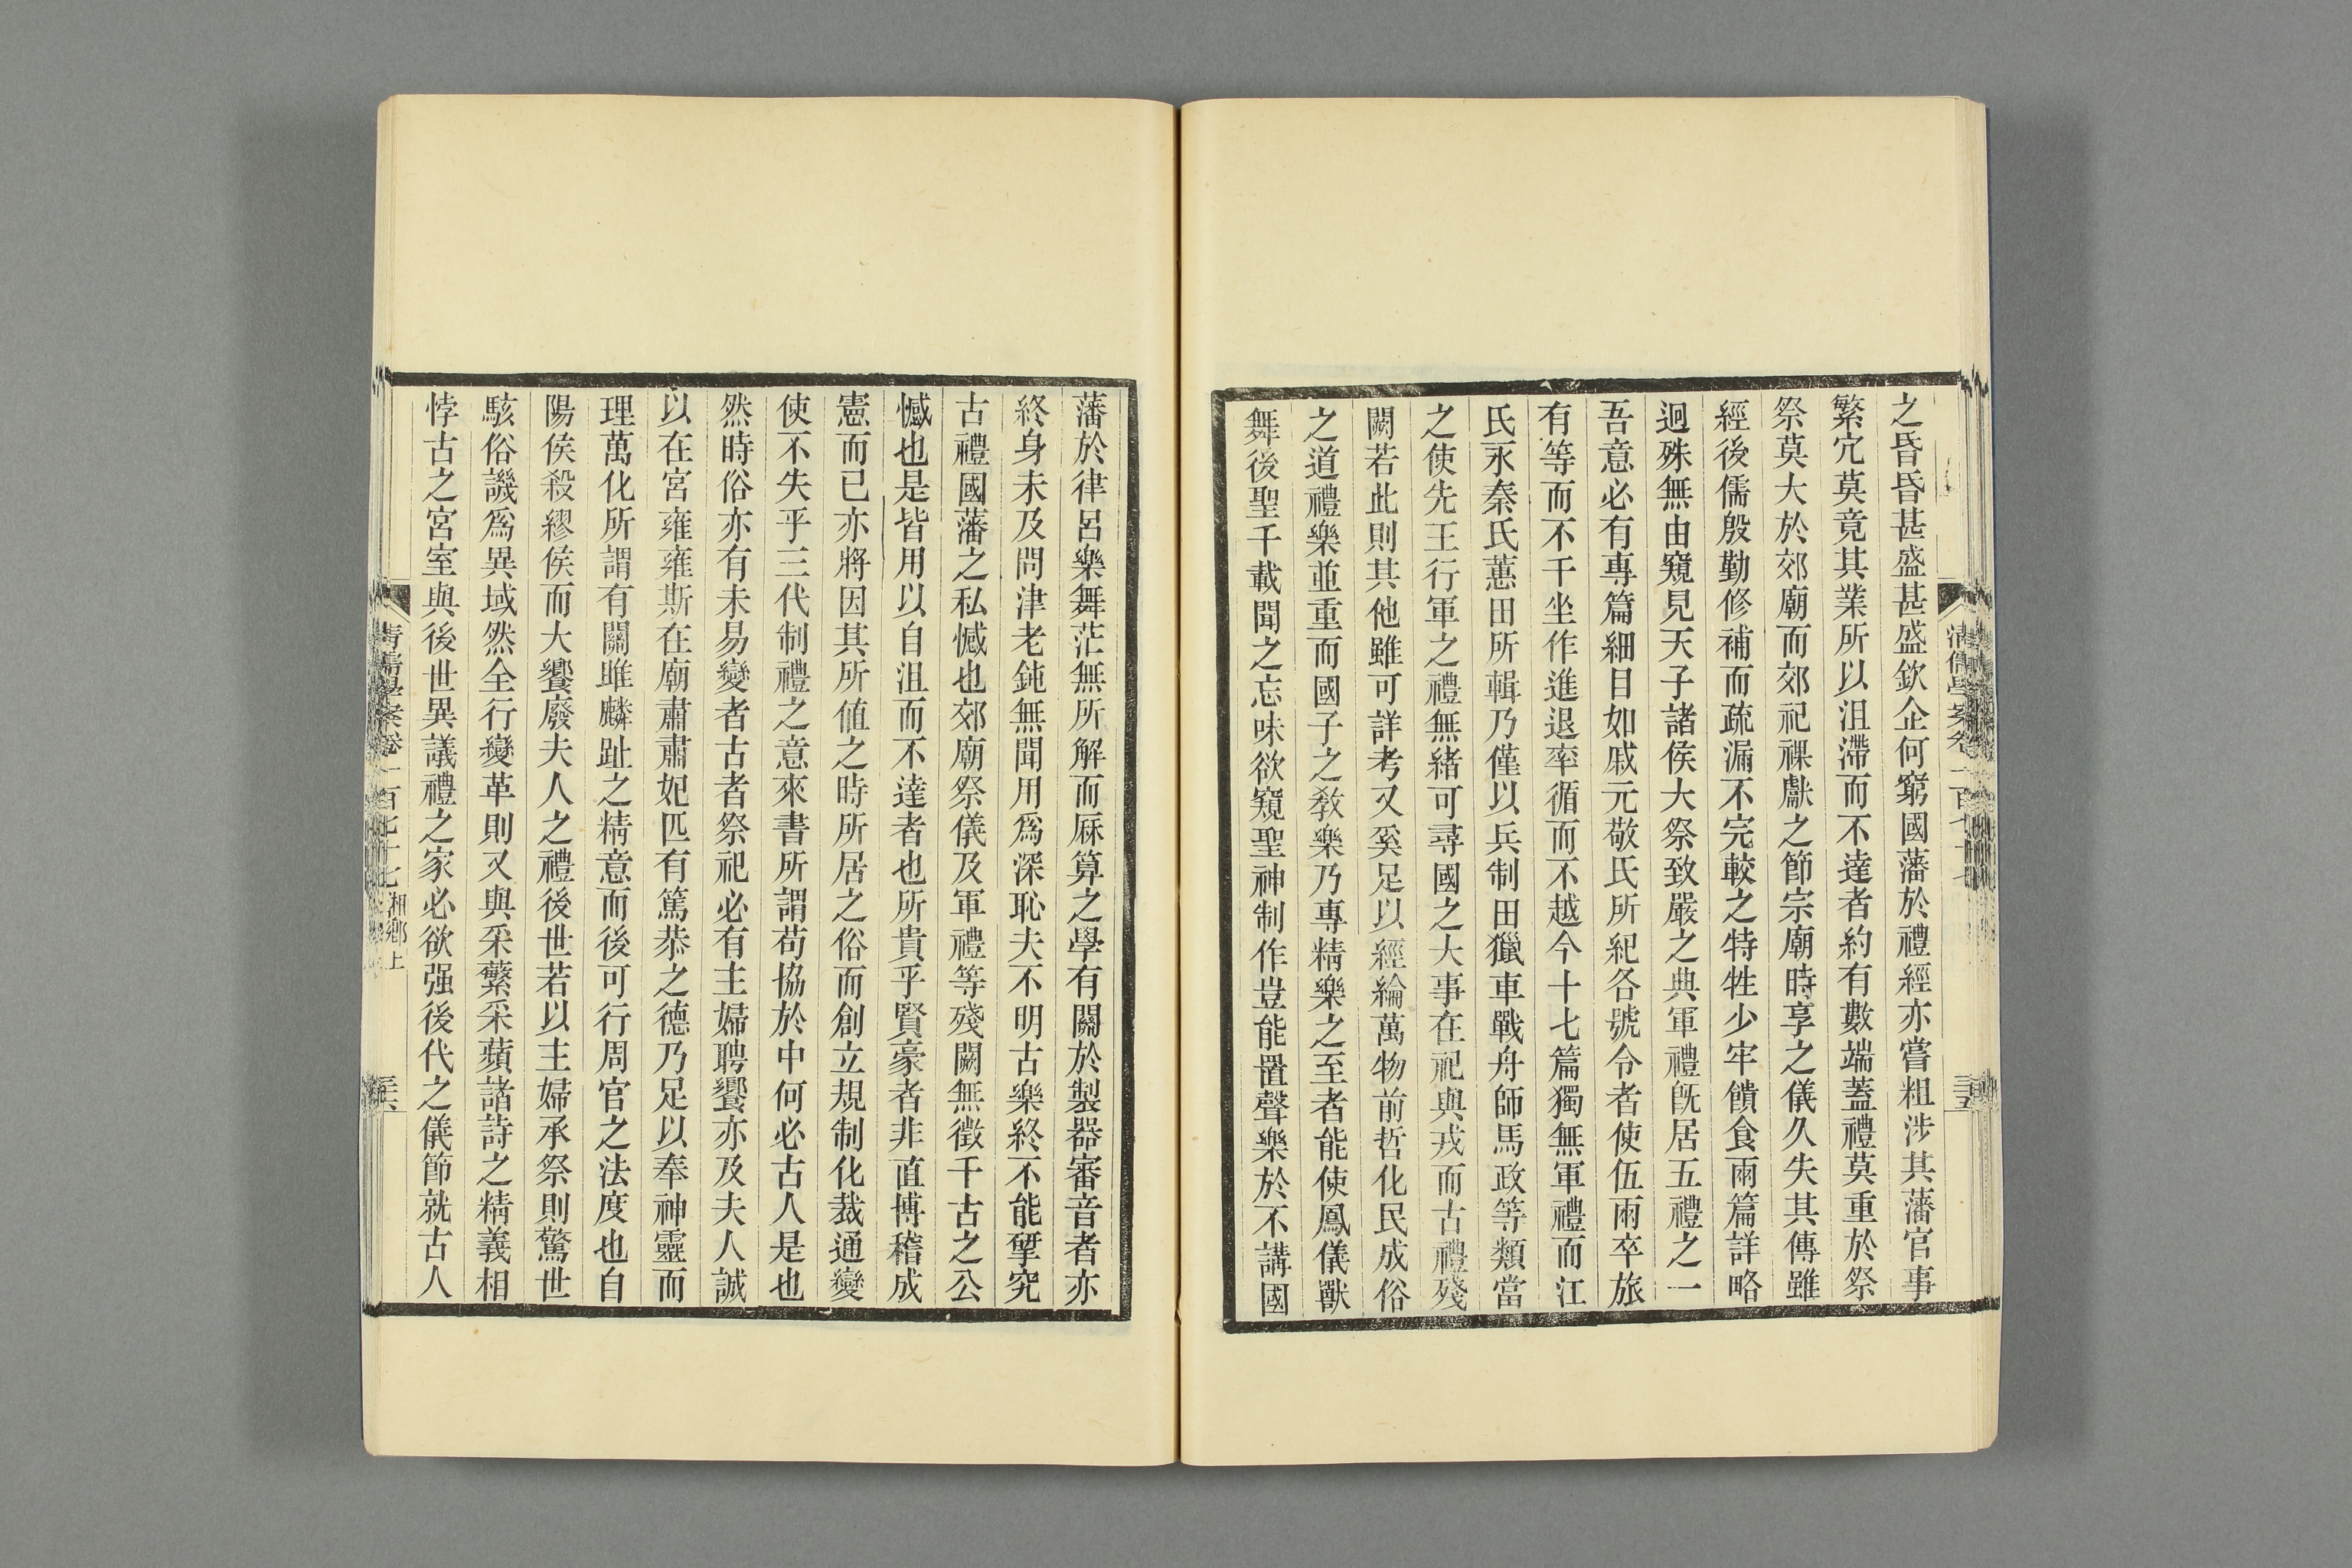 之昏昏甚盛甚盛欽企何窮國藩於禮經亦嘗粗涉其藩官事
繁宂莫竟其業所以沮滯而不達者約有數端蓋禮莫重於祭
祭莫大於郊廟而郊祀祼獻之節宗廟時享之儀久失其傳雖
經後儒殷勤修補而疏漏不完較之特牲少牢饋食兩篇詳略
迥殊無由窺見天子諸侯大祭致嚴之典軍禮旣居五禮之一
吾意必有專篇細目如戚元敬氏所紀各號令者使伍兩卒旅
有等而不干坐作進退率循而不越今十七篇獨無軍禮而江
氏永秦氏蕙田所輯乃僅以兵制田獵車戰舟師馬政等類當
之使先王行軍之禮無緒可尋國之大事在祀與戎而古禮殘
闕若此則其他雖可詳考又奚足以經綸萬物前哲化民成俗
之道禮樂並重而國子之敎樂乃專精樂之至者能使鳳儀獸
舞後聖千載聞之忘味欲窺聖神制作豈能置聲樂於不講國
藩於律呂樂舞茫無所解而厤算之學有關於製器審音者亦
終身未及問津老鈍無聞用爲深恥夫不明古樂終不能硏究
古禮國藩之私憾也郊廟祭儀及軍禮等殘闕無徵千古之公
憾也是皆用以自沮而不達者也所貴乎賢豪者非直博稽成
憲而已亦將因其所値之時所居之俗而創立規制化裁通變
使不失乎三代制禮之意來書所謂苟協於中何必古人是也
然時俗亦有未易變者古者祭祀必有主婦聘饗亦及夫人誠
以在宮雍雍斯在廟肅肅妃匹有篤恭之德乃足以奉神靈而
理萬化所謂有關雎麟趾之精意而後可行周官之法度也自
陽侯殺繆侯而大饗廢夫人之禮後世若以主婦承祭則驚世
駭俗譏爲異域然全行變革則又與采蘩采蘋諸詩之精義相
悖古之宮室與後世異議禮之家必欲强後代之儀節就古人
清儒學案卷一百七十七 湘鄉上